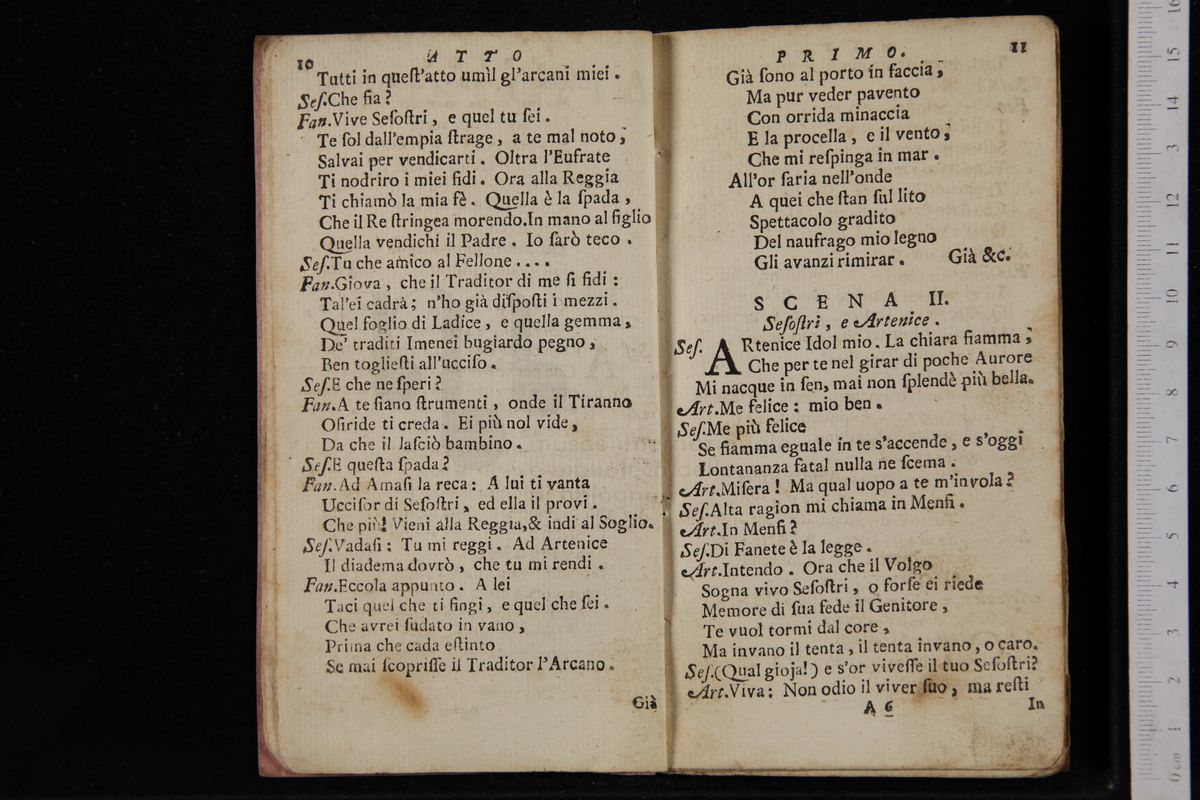 10 ATTO
Tutti in queſt'atto umìl gl'arcani miei.
Seſ.Che fia?
Fan.Vive Seſoſtri, e quel tu ſei.
Te ſol dall'empia ſtrage, a te mal noto;
Salvai per vendicarti. Oltra l'Eufrate
Ti nodriro i miei fidi. Ora alla Reggia
Ti chiamò la mia fè. Quella è la ſpada,
Che il Re ſtringea morendo.In mano al figlio
Quella vendichi il Padre. Io ſarò teco.
Seſ.Tu che amico al Fellone....
Fan.Giova, che il Traditor di me ſi fidi:
Tal'ei cadrà; n'ho già diſpoſti i mezzi.
Quel foglio di Ladice, e quella gemma,
De' traditi Imenei bugiardo pegno,
Ben toglieſti all'ucciſo.
Seſ.E che ne ſperi?
Fan.A te ſiano ſtrumenti, onde il Tiranno
Oſiride ti creda. Ei più nol vide,
Da che il laſciò bambino.
Seſ.E queſta ſpada?
Fan.Ad Amaſi la reca: A lui ti vanta
Ucciſor di Seſoſtri, ed ella il provi.
Che più! Vieni alla Reggia,& indi al Soglio.
Seſ.Vadaſi: Tu mi reggi. Ad Artenice
Il diadema dovrò, che tu mi rendi.
Fan.Eccola appunto. A lei
Taci quel che ti fingi, e quel che ſei.
Che avrei ſudato in vano,
Prima che cada eſtinto
Se mai ſcopriſſe il Traditor l'Arcano.
Già
PRIMO. 11
Già ſono al porto in faccia;
Ma pur veder pavento
Con orrida minaccia
E la procella, e il vento;
Che mi reſpinga in mar.
All'or ſaria nell'onde
A quei che ſtan ſul lito
Spettacolo gradito
Del naufrago mio legno
Gli avanzi rimirar. Già &c.
SCENA II.
Seſoſtri, e Artenice.
Seſ. ARtenice Idol mio. La chiara fiamma;
Che per te nel girar di poche Aurore
Mi nacque in ſen, mai non ſplendè più bella.
Art.Me felice: mio ben.
Seſ.Me più felice
Se fiamma eguale in te s'accende, e s'oggi
Lontananza fatal nulla ne ſcema.
Art.Miſera! Ma qual uopo a te m'invola?
Seſ.Alta ragion mi chiama in Menfi.
Art.In Menfi?
Seſ.Di Fanete è la legge.
Art.Intendo. Ora che il Volgo
Sogna vivo Seſoſtri, o forſe ei riede
Memore di ſua fede il Genitore,
Te vuol tormi dal core,
Ma invano il tenta, il tenta invano, o caro.
Seſ.(Qual gioja!) e s'or viveſſe il tuo Seſoſtri?
Art.Viva: Non odio il viver ſuo, ma reſti
A 6 In
0 cm 1 2 3 4 5 6 7 8 9 10 11 12 3 14 15 16